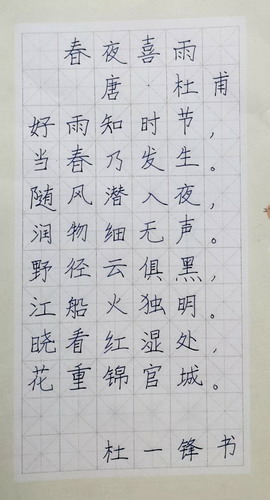 春夜喜雨
唐·杜甫
好雨知时节，
当春乃发生。
随风潜入夜，
润物细无声。
野径云俱黑，
江船火独明。
晓看红湿处，
花重锦官城。
杜一锋书